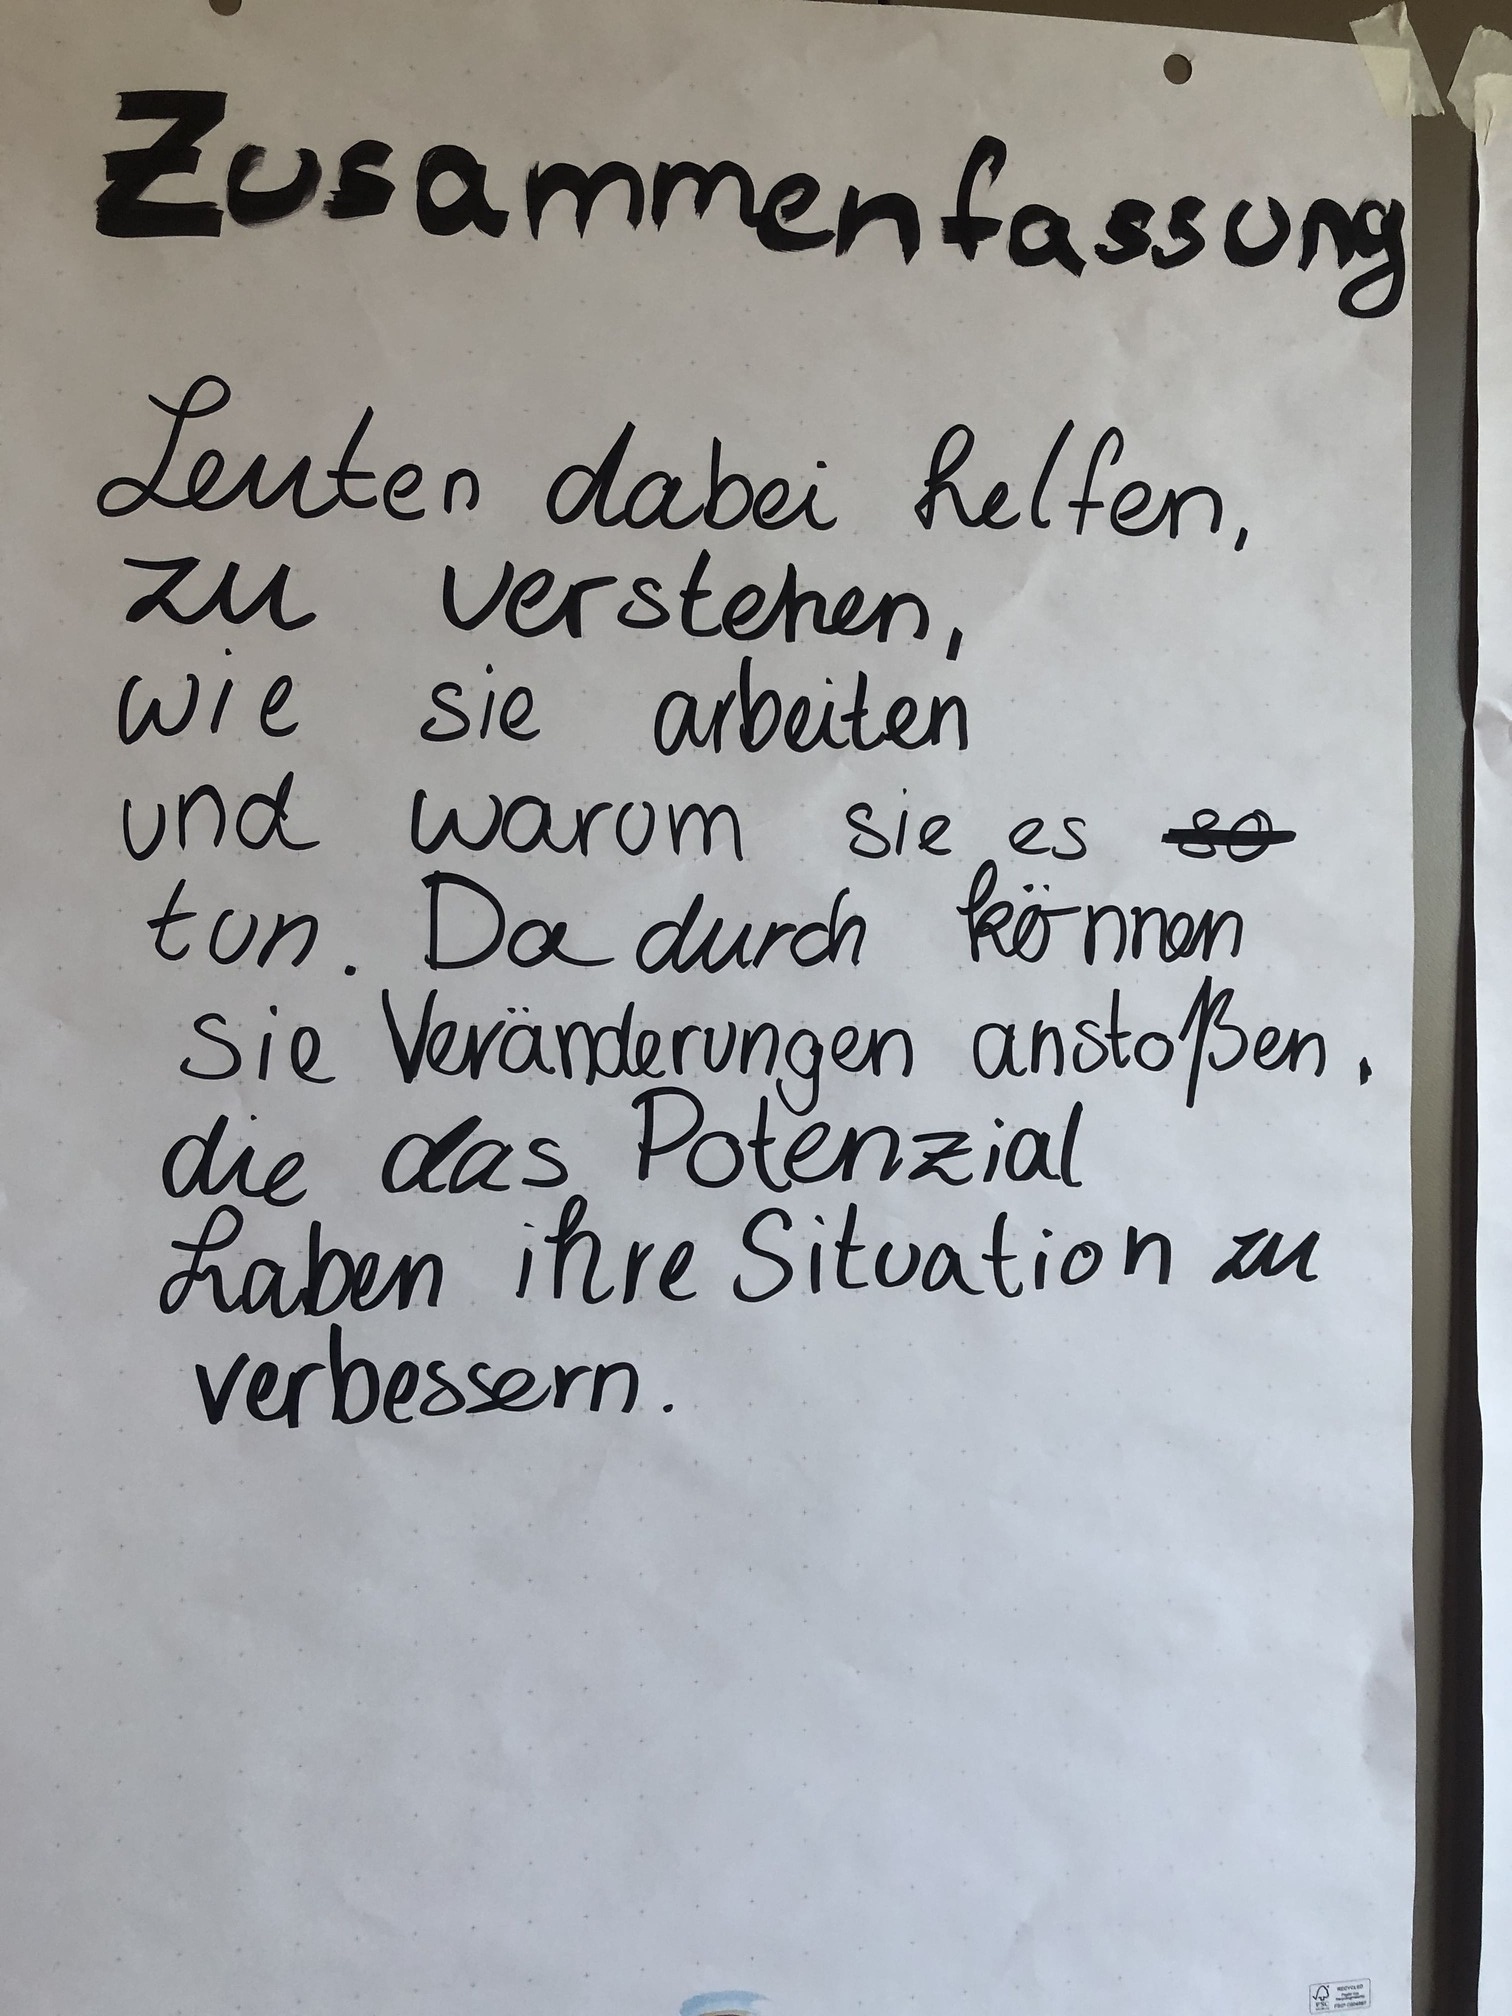 Zusammenfassung
Leuten dabei helfen,
zu verstehen,
wie sie arbeiten
und warum sie es so
tun. Dadurch können
sie Veränderungen anstoßen,
die das Potenzial
haben ihre Situation zu
verbessern.
FSC
RECYCLED